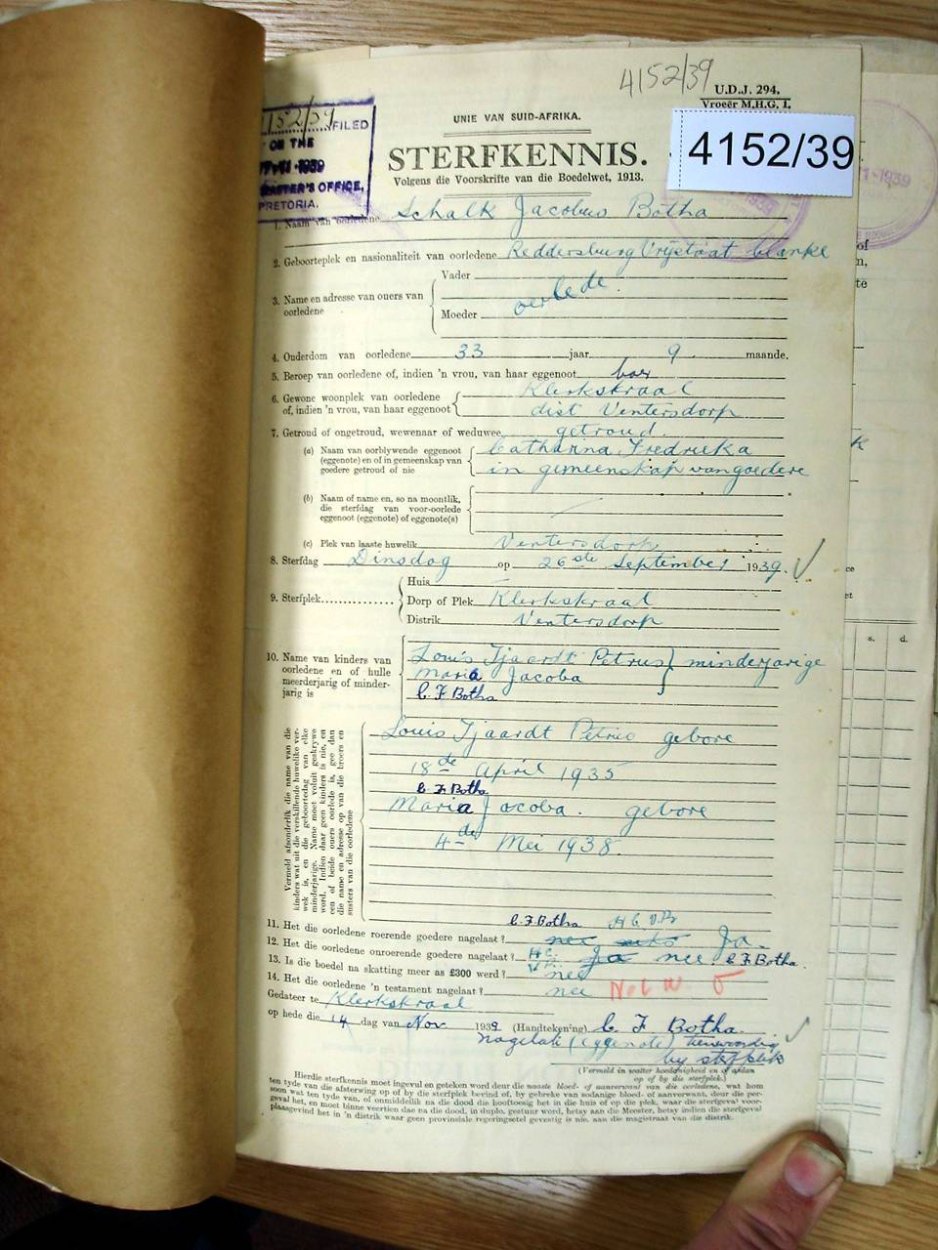 4152/39
U.D.J. 294.
Vroeër M.H.G. I.
4152/39
152/39 FILED
ON THE
1939
MASTER'S OFFICE,
PRETORIA.
UNIE VAN SUID-AFRIKA.
STERFKENNIS.
Volgens die Voorskrifte van die Boedelwet, 1913.
1. Naam van oorledene Schalk Jacobus Botha
2. Geboorteplek en nasionaliteit van oorledene Reddersburg Vrijstaat blanke
3. Name en adresse van ouers van oorledene
Vader
oorlede.
Moeder
4. Ouderdom van oorledene 33 jaar 9 maande.
5. Beroep van oorledene of, indien 'n vrou, van haar eggenoot boer
6. Gewone woonplek van oorledene Klerkskraal
of, indien 'n vrou, van haar eggenoot dist Ventersdorp
7. Getroud of ongetroud, wewenaar of weduwee getroud
(a) Naam van oorblywende eggenoot Catharina Fredrieka
(eggenote) en of in gemeenskap van in gemeenskap van goedere
goedere getroud of nie
(b) Naam of name en, so na moontlik,
die sterfdag van voor-oorlede
eggenoot (eggenote) of eggenote(s)
(c) Plek van laaste huwelik Ventersdorp
8. Sterfdag Dinsdag op 26ste September 1939.
9. Sterfplek
Huis
Dorp of Plek Klerkskraal
Distrik Ventersdorp
10. Name van kinders van
oorledene en of hulle
meerderjarig of minder-
jarig is
Louis Tjaardt Petrus } minderjarige
Maria Jacoba
C. F Botha
Vermeld afsonderlik die name van die
kinders wat uit die verskillende huwelike ver-
wek is, en die geboortedag van elke
minderjarige. Name moet voluit geskrywe
word. Indien daar geen kinders is nie, en
een of beide ouers oorlede is, gee dan
die name en adresse op van die broers en
susters van die oorledene
Louis Tjaardt Petrus gebore
18de April 1935
C. F Botha
Maria Jacoba. gebore
4de Mei 1938.
C. F Botha
11. Het die oorledene roerende goedere nagelaat? nee Ja.
12. Het die oorledene onroerende goedere nagelaat? Ja nee C. F Botha.
13. Is die boedel na skatting meer as £300 werd? nee
14. Het die oorledene 'n testament nagelaat? nee
Gedateer te Klerkskraal
op hede die 14 dag van Nov 1939 (Handtekening) C. F Botha.
Nagelate (eggenote) teenwoordig
by sterfplek
(Vermeld in watter hoedanigheid en of aldan
op of by die sterfplek.)
Hierdie sterfkennis moet ingevul en geteken word deur die naaste bloed- of aanverwant van die oorledene, wat hom
ten tyde van die afsterwing op of by die sterfplek bevind of, by gebreke van sodanige bloed- of aanverwant, deur die per-
soon wat ten tyde van, of onmiddellik na die dood die hooftoesig het in die huis of op die plek, waar die sterfgeval voor-
geval het, en moet binne veertien dae na die dood, in duplo, gestuur word, hetsy aan die Meester, hetsy indien die sterfgeval
plaasgevind het in 'n distrik waar geen provinsiale regeringsetel gevestig is nie, aan die magistraat van die distrik.
1939
of
te
s. d.